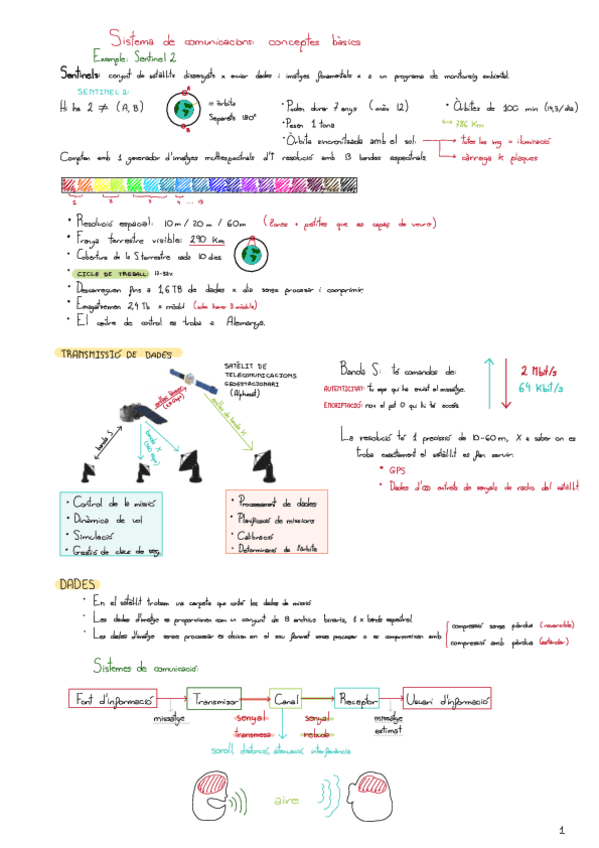 Sistema de comunicacions: conceptes bàsics
Exemple: Sentinel 2
Sentinels: conjunt de satèl·lits dissenyats x enviar dades i imatges fonamentals x a un programa de monitoreig ambiental.
SENTINEL 2:
Hi ha 2 ≠ (A, B)
A
B
= òrbita
Separats 180º
• Poden durar 7 anys (màx 12)
• Pesen 1 tona
• Òrbita sincronitzada amb el sol:
totes les img = iluminació
càrrega x plaques
• Òrbites de 100 min (14,3/dia)
786 Km
Compten amb 1 generador d'imatges multiespectrals d'↑ resolució amb 13 bandes espectrals.
1 2 3 4 ... 13
• Resolució espacial: 10m / 20m / 60m
• Franja terrestre visible: 290 Km
• Cobertura de la S terrestre cada 10 dies
• CICLE DE TREBALL:
• Descarreguen fins a 1,6 TB de dades x dia sense processar i comprimir.
• Emagatzemen 2,4 Tb x mòdul
• El centre de control es troba a Alemanya.
TRANSMISSIÓ DE DADES
SATÈL·LIT DE
TELECOMUNICACIONS
GEOESTACIONARI
(Alphasat)
banda S
banda X
enllaç de banda K
Banda S: té comandos de:
AUTENTICITAT: tu saps qui ha enviat el missatge.
ENCRIPTACIÓ: només el pot
2 Mbit/s
64 Kbit/s
La resolució té 1 precissió de 10-60m, x a saber on es
troba exactament el satèl·lit es fan servir:
• GPS
• Dades d'∞ entrels de senyals de radio del satèl·lit
• Control de la missió
• Dinàmica de vol
• Simulació
• Gestió de claus de seg.
• Processament de dades
• Planificació de missions
• Calibració
• Determinació de l'òrbita
DADES
• En el satèl·lit trobem una carpeta que conté les dades de missió
• Les dades d'imatge es proporcionen com un conjunt de 13 archius binaris, 1 x banda espectral
• Les dades d'imatge sense processar es deixen en el seu format sense processar o se comprimeixen amb
compressió sense pèrdua (reversible)
compressió amb pèrdua (estàndar)
Sistemes de comunicació:
Font d'informació
Transmisor
Canal
Receptor
Usuari d'informació
missatge
senyal
transmesa
senyal
rebuda
missatge
estimat
soroll, distorsió, atenuació, interferència
aire
1